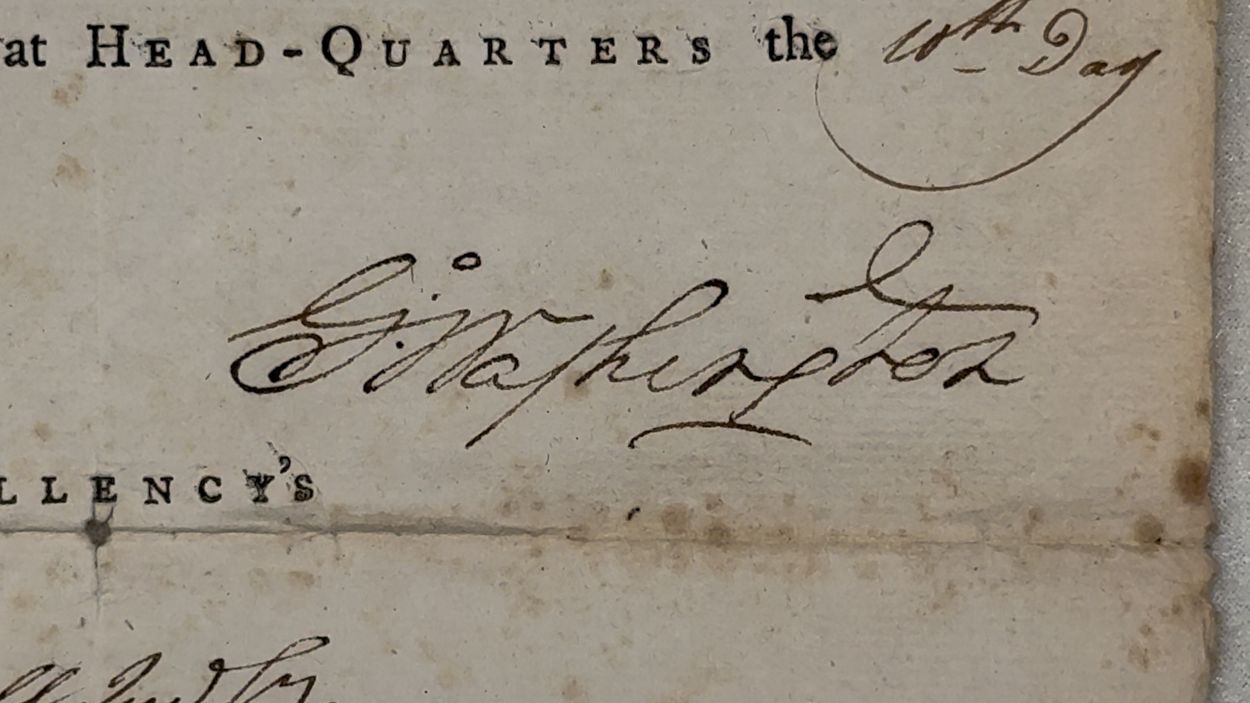 at HEAD-QUARTERS the 10th Day
G:Washington
LLENCY's